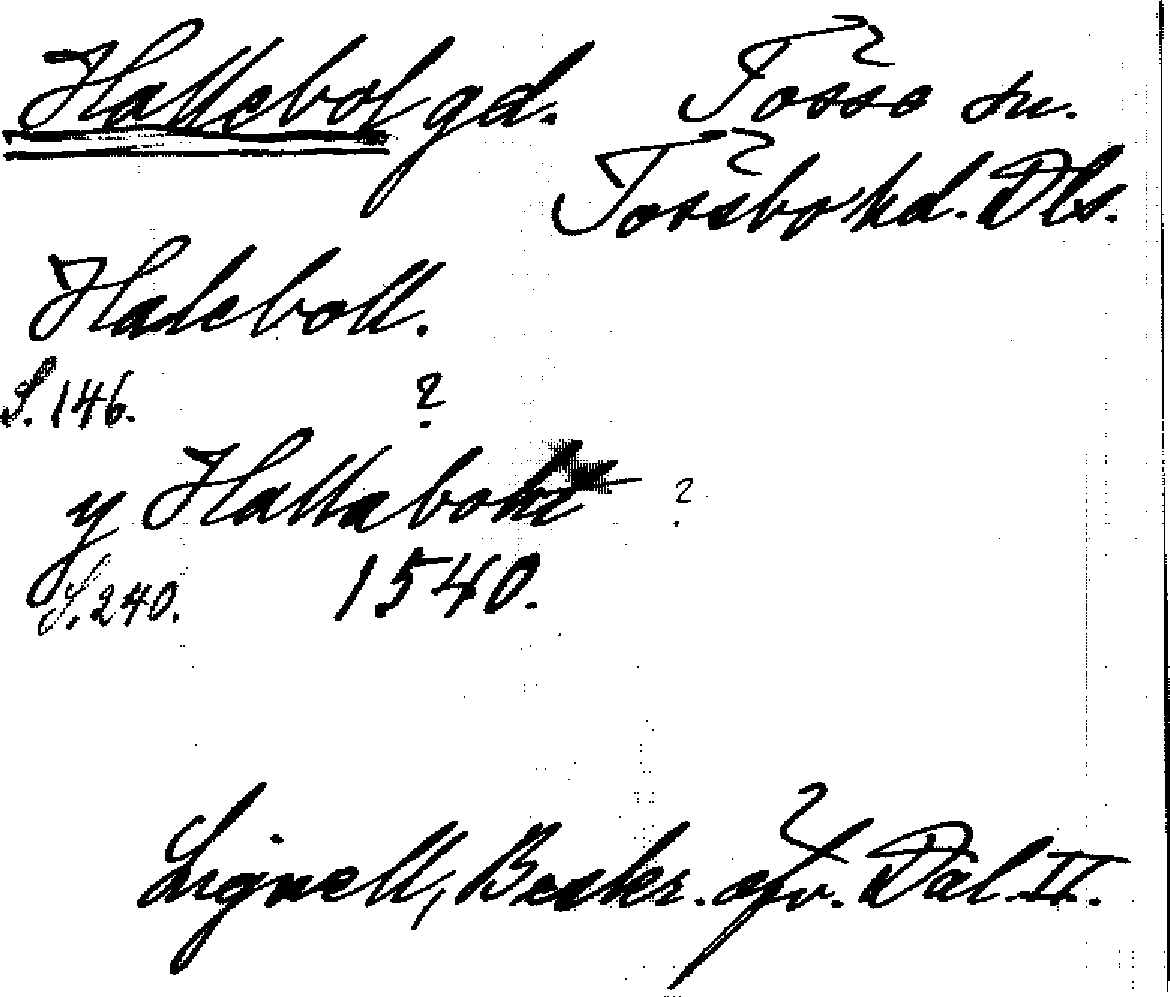 Hallebol gd. Tösse sn.
Tössbo hd. Dls.
Haleboll.
S. 146. ?
y Hallabohl ?
S. 240. 1540.
Lignell, Beskr. öfv. Dal. II.